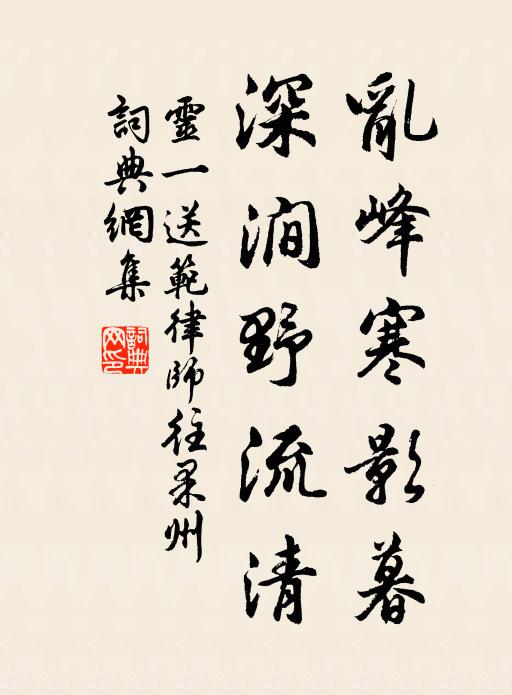 亂峰寒影暮
深澗野流清
靈一送範律師往果州
詞典網集
詞典网印